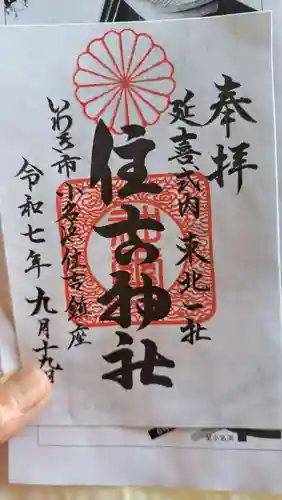 奉拝
延喜式内 東北一社
住吉神社
いわき市 小名浜住吉鎮座
令和七年 九月十九日